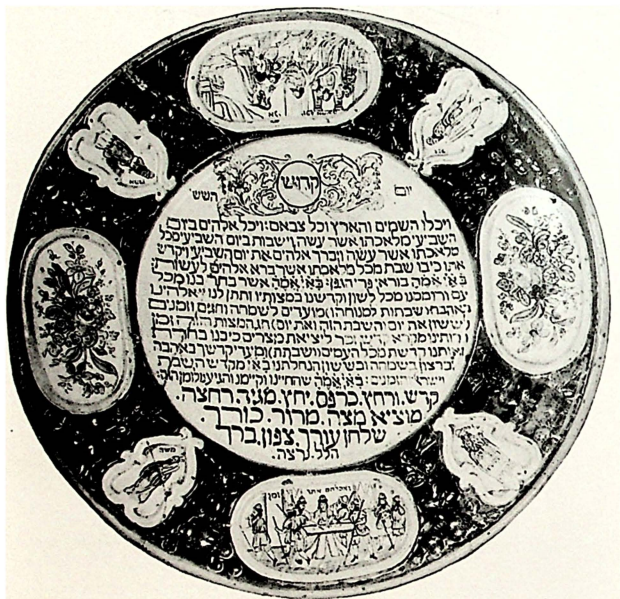 יום קדוש הששי
ויכלו השמים והארץ וכל צבאם: ויכל אלהים ביום
השביעי מלאכתו אשר עשה וישבות ביום השביעי מכל
מלאכתו אשר עשה ויברך אלהים את יום השביעי ויקדש
אתו כי בו שבת מכל מלאכתו אשר ברא אלהים לעשות
בא״י אמ״ה בורא פרי הגפן: בא״י אמ״ה אשר בחר בנו מכל
עם ורוממנו מכל לשון וקדשנו במצותיו ותתן לנו יי אלהינו
באהבה שבתות למנוחה ו מועדים לשמחה חגים וזמנים
לששון את יום השבת הזה ואת יום חג המצות הזה זמן
חרותינו מקרא קדש זכר ליציאת מצרים כי בנו בחרת
ואותנו קדשת מכל העמים ושבת ומועדי קדשך באהבה
וברצון בשמחה ובששון הנחלתנו בא״י מקדש השבת
וישראל והזמנים: בא״י אמ״ה שהחיינו וקיימנו והגיענו לזמן הזה:
קדש. ורחץ. כרפס. יחץ. מגיד. רחצה.
מוציא מצה. מרור. כורך
שלחן עורך. צפון. ברך
הלל. נרצה.
משה